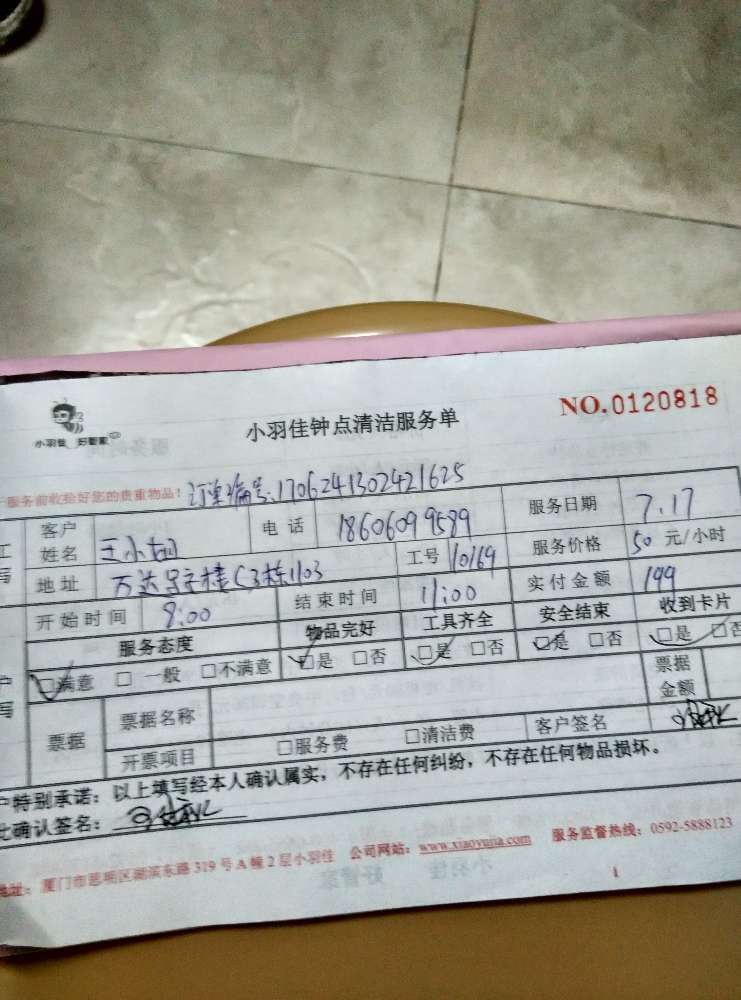 小羽佳 好管家
小羽佳钟点清洁服务单
NO.0120818
服务前收拾好您的贵重物品！ 订单编号:1706241302421625
客户姓名 王小姐 电话 18606099589 服务日期 7.17
地址 万达 C3栋1103 工号 10169 服务价格 50 元/小时
开始时间 8:00 结束时间 11:00 实付金额 199
服务态度 物品完好 工具齐全 安全结束 收到卡片
☑满意 □一般 □不满意 ☑是 □否 ☑是 □否 ☑是 □否 ☑是 ☑否
票据 票据名称 票据金额
开票项目 □服务费 □清洁费 客户签名
户特别承诺：以上填写经本人确认属实，不存在任何纠纷，不存在任何物品损坏。
此确认签名：
地址：厦门市思明区湖滨东路319号A幢2层小羽佳 公司网站：www.xiaoyujia.com 服务监督热线：0592-5888123
1